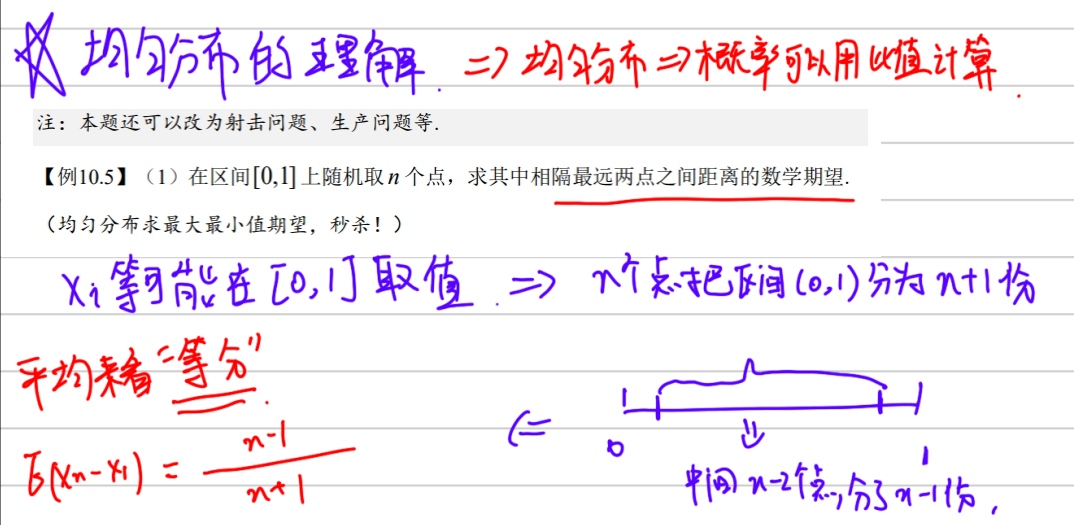 均匀分布的理解. => 均匀分布 => 概率可以用比值计算.
注：本题还可以改为射击问题、生产问题等.
【例10.5】（1）在区间[0,1]上随机取n个点，求其中相隔最远两点之间距离的数学期望.
（均匀分布求最大最小值期望，秒杀！）
Xi 等可能在 [0,1] 取值. => n个点把区间(0,1)分为n+1份
平均来看"等分".
0 1
中间n-2个点,分了n-1份.
E(Xn-X1) = \frac{n-1}{n+1}